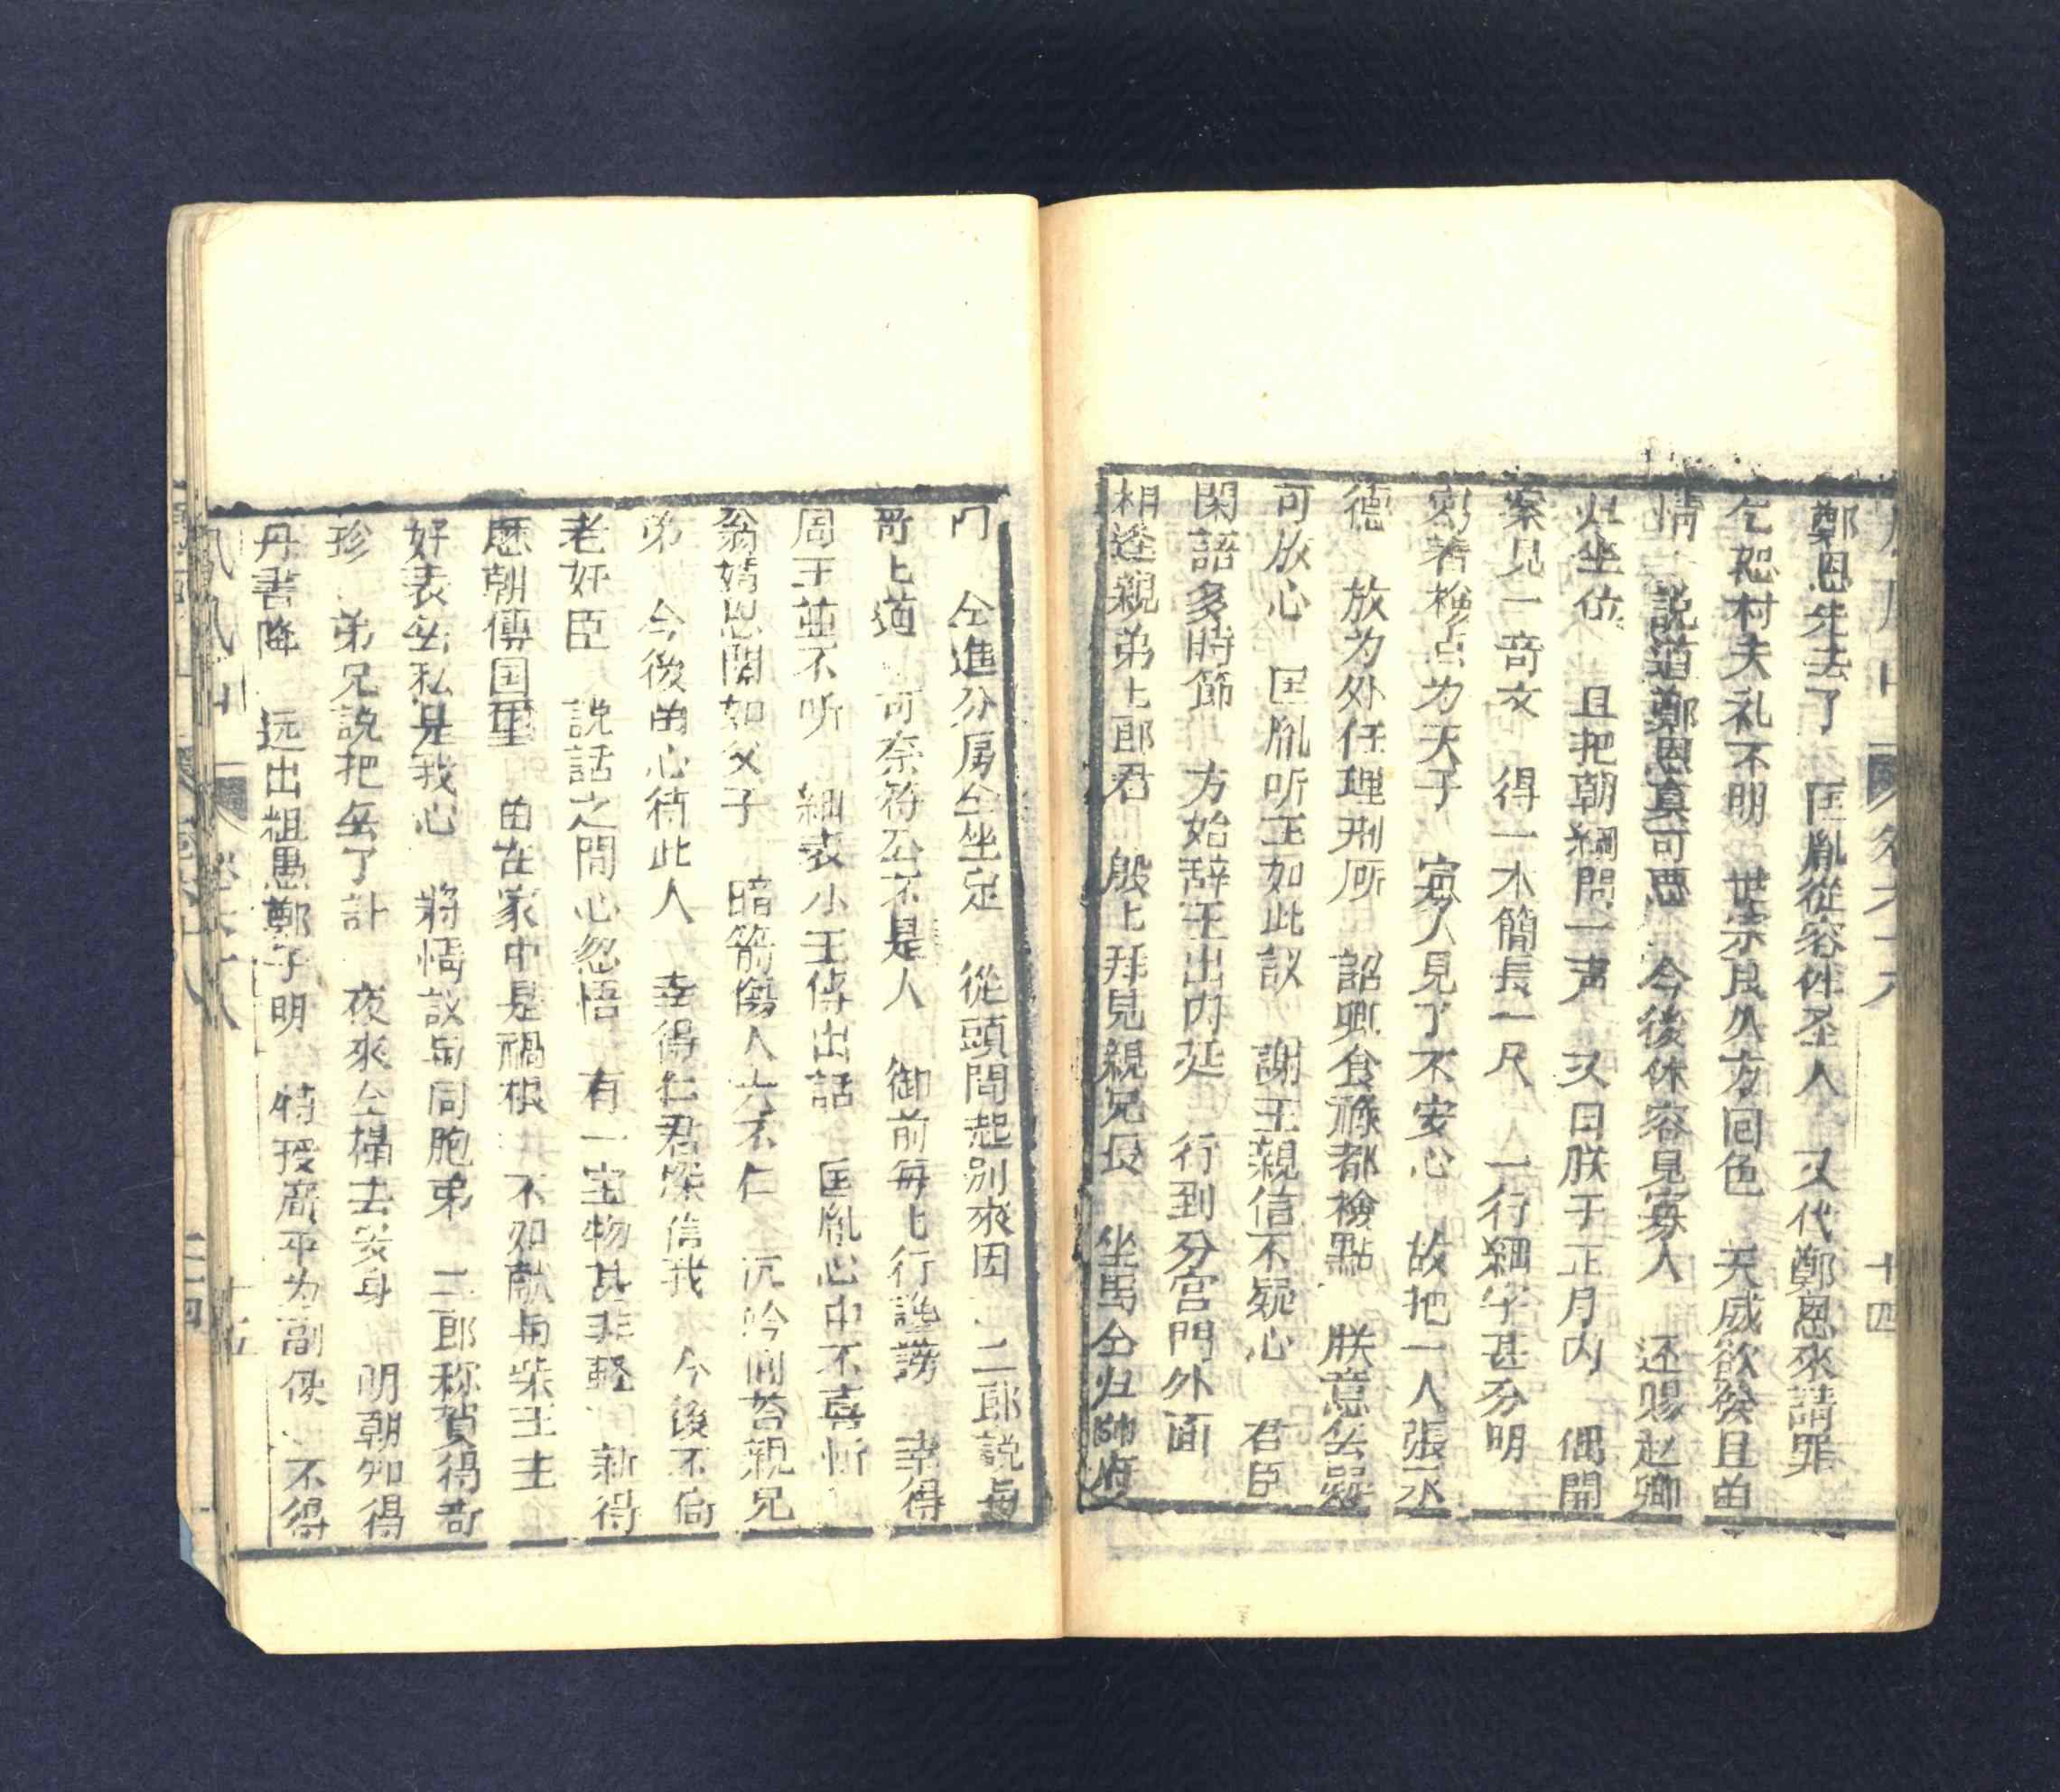 鄭恩先去了 匡胤從容伴圣人 又代鄭恩來請罪
乞恕村夫礼不明 世宗良久方回色 天威欲徐且由
情 說道鄭恩真可惡 今後休容見寡人 还賜赵卿
坐位 且把朝綱問一声 又曰朕于正月内 偶開
案見一奇文 得一木簡長一尺 一行綱字甚分明
刻着檢点为天子 寡人見了不安心 故把一人張丕
德 放为外任理刑所 詔卿食祿都檢點 朕意
可放心 匡胤听王如此説 謝王親信不疑心 君臣
閑語多時節 方始辞王出内廷 行到分宮門外面
相逢親弟上郎君 殷上拜見親兄長 坐馬仝归帥府
門 仝進分房仝坐定 從頭問起別來因 二郎説与
哥上道 可奈符公不是人 御前每上行謗 幸得
周王並不听 細表小王傳出話 匡胤心中不喜忻
翁婿恩関如父子 暗箭傷人六不仁 沉吟回荅親兄
弟 今後由心待此人 幸得仁君深信我 今後不
老奸臣 説話之間心忽悟 有一宝物甚非軽 新得
歷朝傳国璽 由在家中是禍根 不如献与柴王主
好表無私是我心 將情説与同胞弟 二郎称賀得奇
珍 弟兄説把無了計 夜來仝榻去安身 明朝知得
丹書降 远出祖愚鄭子明 特授高平为副使 不得
十四